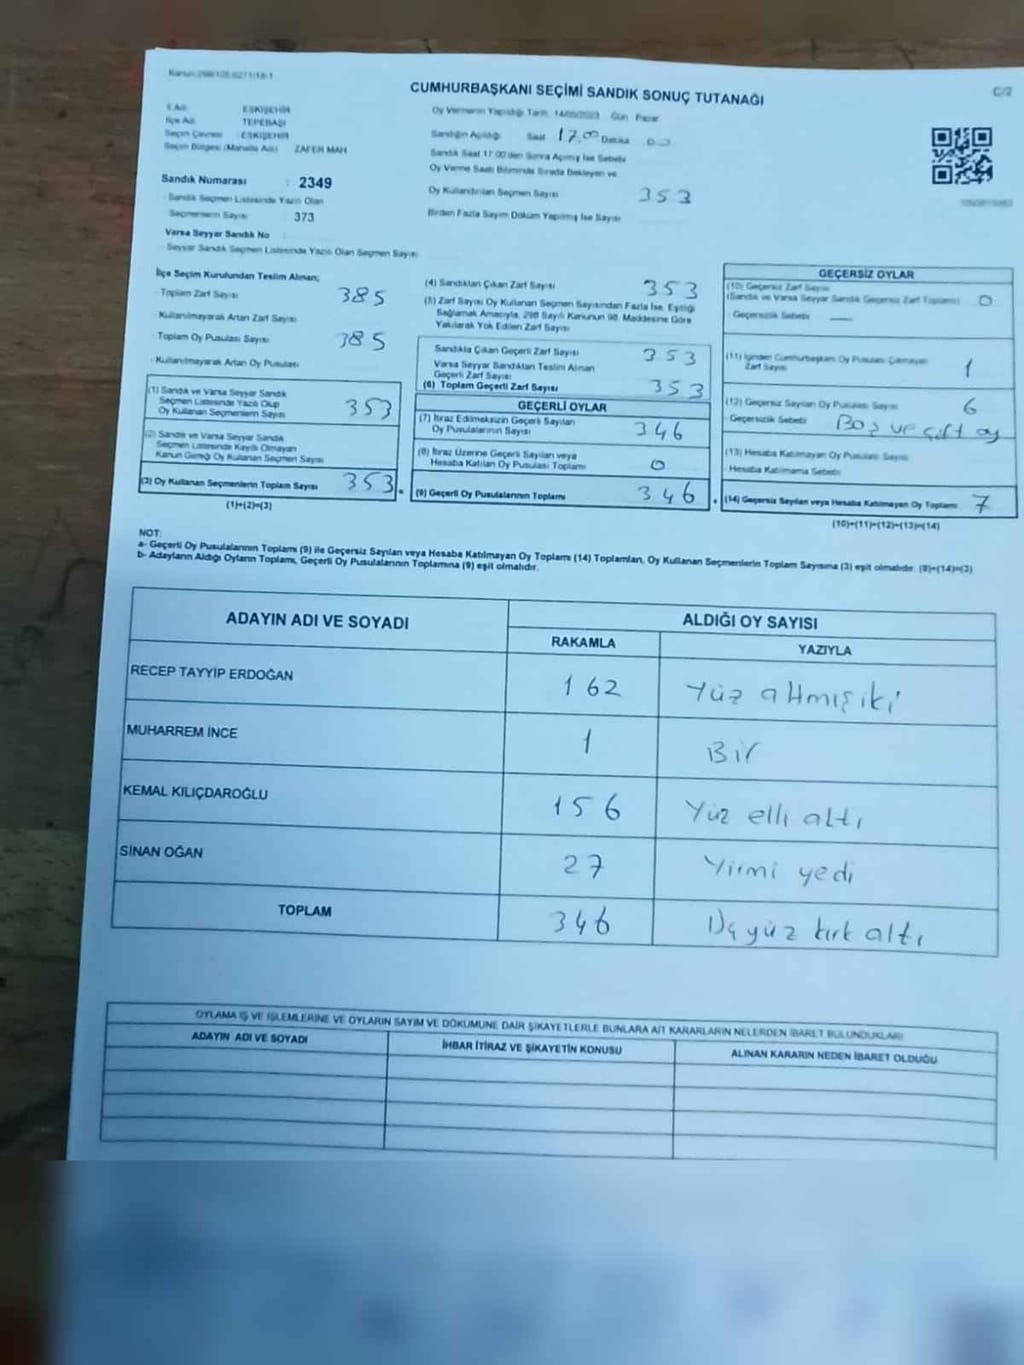 Kanun:298/105,6271/18-1
CUMHURBAŞKANI SEÇİMİ SANDIK SONUÇ TUTANAĞI
C/2
İl Adı : ESKİŞEHİR
İlçe Adı : TEPEBAŞI
Seçim Çevresi : ESKİŞEHİR
Seçim Bölgesi (Mahalle Adı) : ZAFER MAH.
Sandık Numarası : 2349
Sandık Seçmen Listesinde Yazılı Olan
Seçmenlerin Sayısı : 373
Varsa Seyyar Sandık No
Seyyar Sandık Seçmen Listesinde Yazılı Olan Seçmen Sayısı
Oy Vermenin Yapıldığı Tarih: 14/05/2023 Gün: Pazar
Sandığın Açıldığı Saat 17.00 Dakika
Sandık Saat 17:00'den Sonra Açılmış İse Sebebi
Oy Verme Saati Bitiminde Sırada Bekleyen ve
Oy Kullandırılan Seçmen Sayısı 353
Birden Fazla Sayım Döküm Yapılmış İse Sayısı
İlçe Seçim Kurulundan Teslim Alınan;
Toplam Zarf Sayısı 385
Kullanılmayarak Artan Zarf Sayısı
Toplam Oy Pusulası Sayısı 385
Kullanılmayarak Artan Oy Pusulası
(1) Sandık ve Varsa Seyyar Sandık
Seçmen Listesinde Yazılı Olup
Oy Kullanan Seçmenlerin Sayısı 353
(2) Sandık ve Varsa Seyyar Sandık
Seçmen Listesinde Kayıtlı Olmayan
Kanun Gereği Oy Kullanan Seçmen Sayısı
(3) Oy Kullanan Seçmenlerin Toplam Sayısı 353
(1)+(2)=(3)
(4) Sandıktan Çıkan Zarf Sayısı 353
(5) Zarf Sayısı Oy Kullanan Seçmen Sayısından Fazla İse, Eşitliği
Sağlamak Amacıyla, 298 Sayılı Kanunun 98. Maddesine Göre
Yakılarak Yok Edilen Zarf Sayısı
Sandıkta Çıkan Geçerli Zarf Sayısı 353
Varsa Seyyar Sandıktan Teslim Alınan
Geçerli Zarf Sayısı
(6) Toplam Geçerli Zarf Sayısı 353
GEÇERLİ OYLAR
(7) İtiraz Edilmeksizin Geçerli Sayılan
Oy Pusulalarının Sayısı 346
(8) İtiraz Üzerine Geçerli Sayılan veya
Hesaba Katılan Oy Pusulası Toplamı 0
(9) Geçerli Oy Pusulalarının Toplamı 346
GEÇERSİZ OYLAR
(10) Geçersiz Zarf Sayısı
(Sandık ve Varsa Seyyar Sandık Geçersiz Zarf Toplamı) 0
Geçersizlik Sebebi
(11) İçinden Cumhurbaşkanı Oy Pusulası Çıkmayan
Zarf Sayısı 1
(12) Geçersiz Sayılan Oy Pusulası Sayısı 6
Geçersizlik Sebebi Boş ve çift oy
(13) Hesaba Katılmayan Oy Pusulası Sayısı
Hesaba Katılmama Sebebi
(14) Geçersiz Sayılan veya Hesaba Katılmayan Oy Toplamı 7
(10)+(11)+(12)+(13)=(14)
NOT:
a- Geçerli Oy Pusulalarının Toplamı (9) ile Geçersiz Sayılan veya Hesaba Katılmayan Oy Toplamı (14) Toplamları, Oy Kullanan Seçmenlerin Toplam Sayısına (3) eşit olmalıdır. (9)+(14)=(3)
b- Adayların Aldığı Oyların Toplamı, Geçerli Oy Pusulalarının Toplamına (9) eşit olmalıdır.
ADAYIN ADI VE SOYADI ALDIĞI OY SAYISI
RAKAMLA YAZIYLA
RECEP TAYYİP ERDOĞAN 162 Yüz altmış iki
MUHARREM İNCE 1 Bir
KEMAL KILIÇDAROĞLU 156 Yüz elli altı
SİNAN OĞAN 27 Yirmi yedi
TOPLAM 346 Üçyüz kırk altı
OYLAMA İŞ VE İŞLEMLERİNE VE OYLARIN SAYIM VE DÖKÜMÜNE DAİR ŞİKAYETLERLE BUNLARA AİT KARARLARIN NELERDEN İBARET BULUNDUKLARI
ADAYIN ADI VE SOYADI İHBAR İTİRAZ VE ŞİKAYETİN KONUSU ALINAN KARARIN NEDEN İBARET OLDUĞU